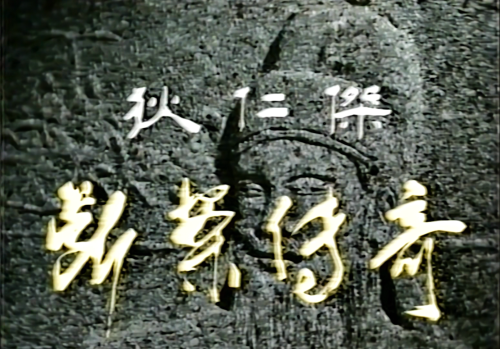 狄仁傑
斷案传奇